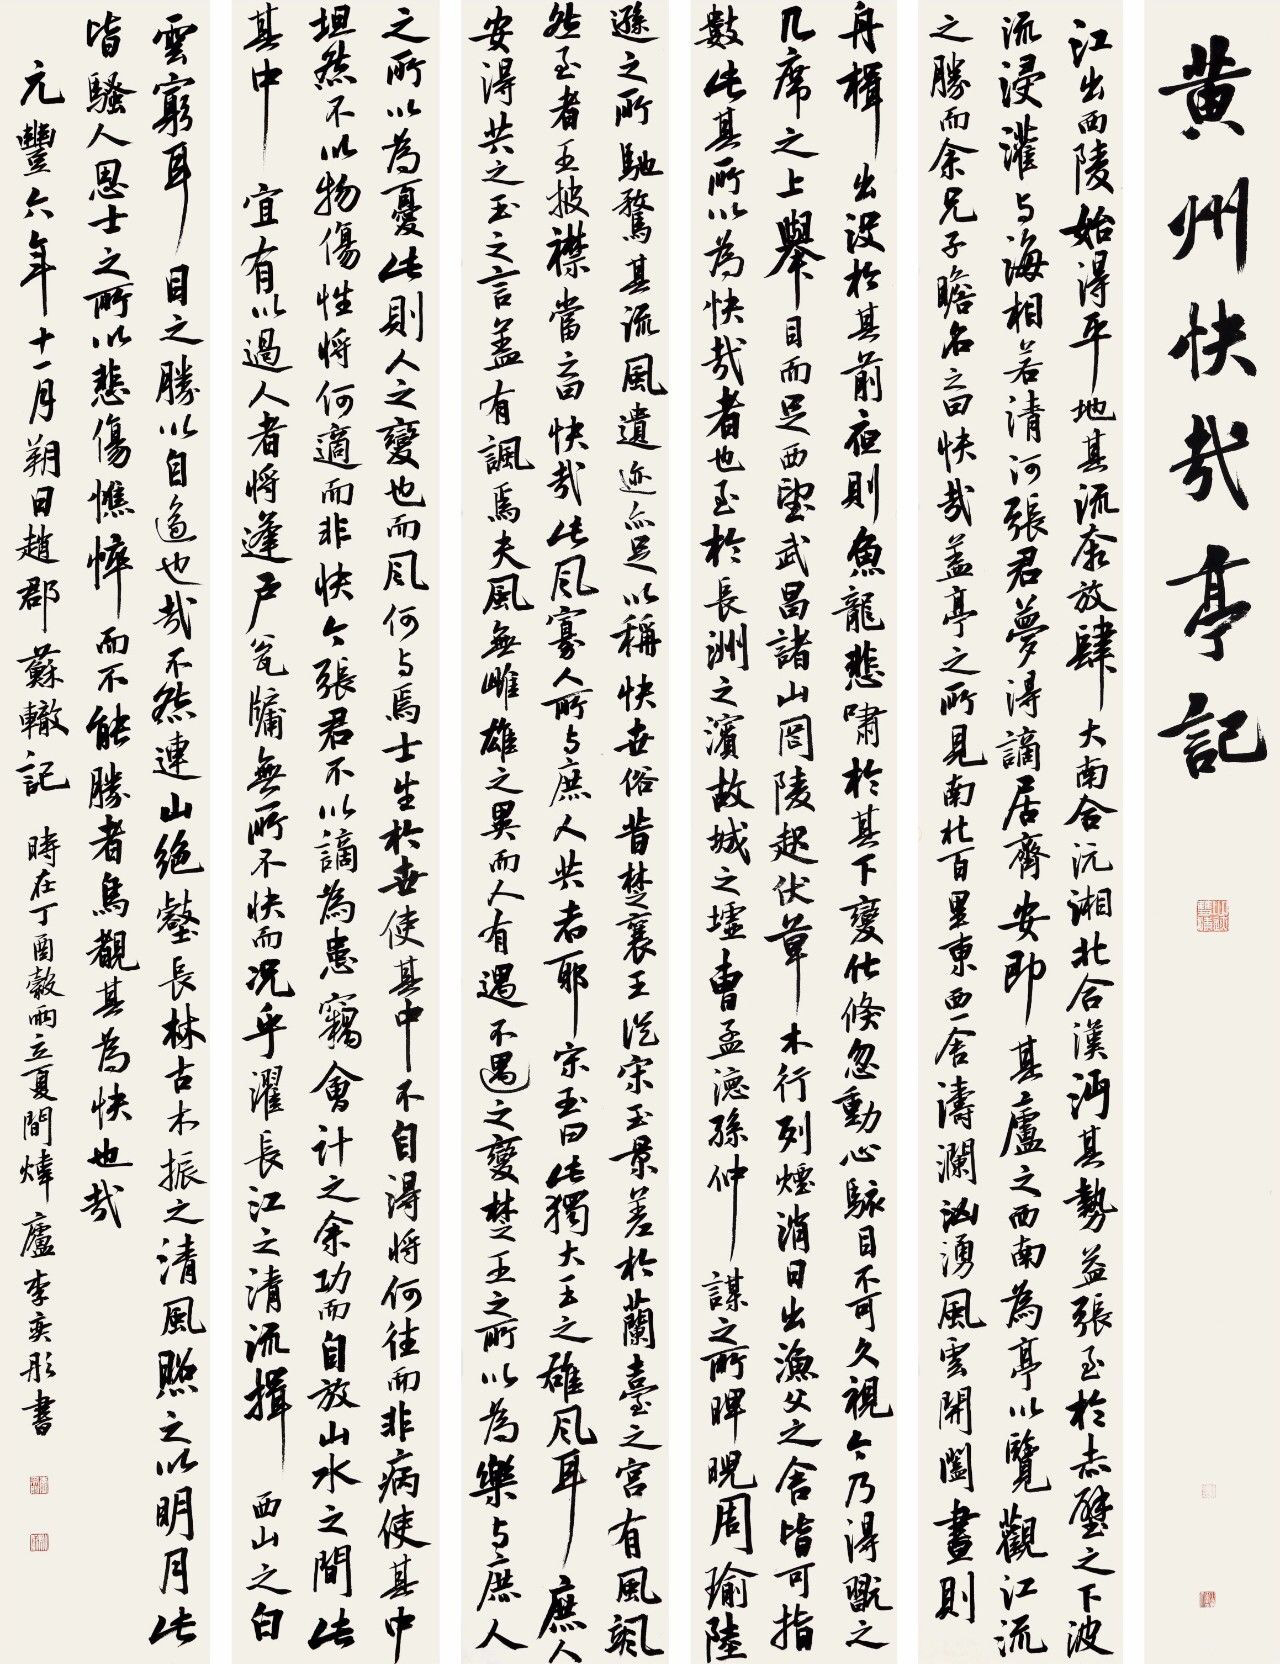 黄州快哉亭記
江出西陵始得平地其流奔放肆大南合沅湘北合漢沔其勢益張至於赤壁之下波
流浸灌与海相若清河張君夢得謫居齊安即其廬之西南為亭以覽觀江流
之勝而余兄子瞻名之曰快哉蓋亭之所見南北百里東西一舍濤瀾洶湧風雲開闔晝則
舟楫出没於其前夜則魚龍悲嘯於其下變化倏忽動心駭目不可久視今乃得翫之
几席之上舉目而足西望武昌諸山岡陵起伏草木行列煙消日出漁父之舍皆可指
數此其所以為快哉者也至於長洲之濱故城之墟曹孟德孫仲謀之所睥睨周瑜陸
遜之所馳騖其流風遺迹亦足以稱快世俗昔楚襄王從宋玉景差於蘭臺之宮有風颯
然至者王披襟當之曰快哉此風寡人所与庶人共者耶宋玉曰此獨大王之雄風耳庶人
安得共之玉之言蓋有諷焉夫風無雌雄之異而人有遇不遇之變楚王之所以為樂与庶人
之所以為憂此則人之變也而風何与焉士生於世使其中不自得將何往而非病使其中
坦然不以物傷性將何適而非快今張君不以謫為患竊會計之余功而自放山水之間此
其中宜有以過人者將蓬戶瓮牖無所不快而况乎濯長江之清流揖西山之白
雲窮耳目之勝以自適也哉不然連山絕壑長林古木振之清風照之以明月此
皆騷人思士之所以悲傷憔悴而不能勝者烏覩其為快也哉
元豐六年十一月朔日趙郡蘇轍記 時在丁酉穀雨立夏間煒廬李奕彤書